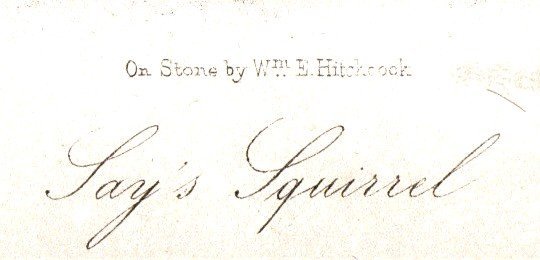 On Stone by Wm. E. Hitchcock
Say's Squirrel